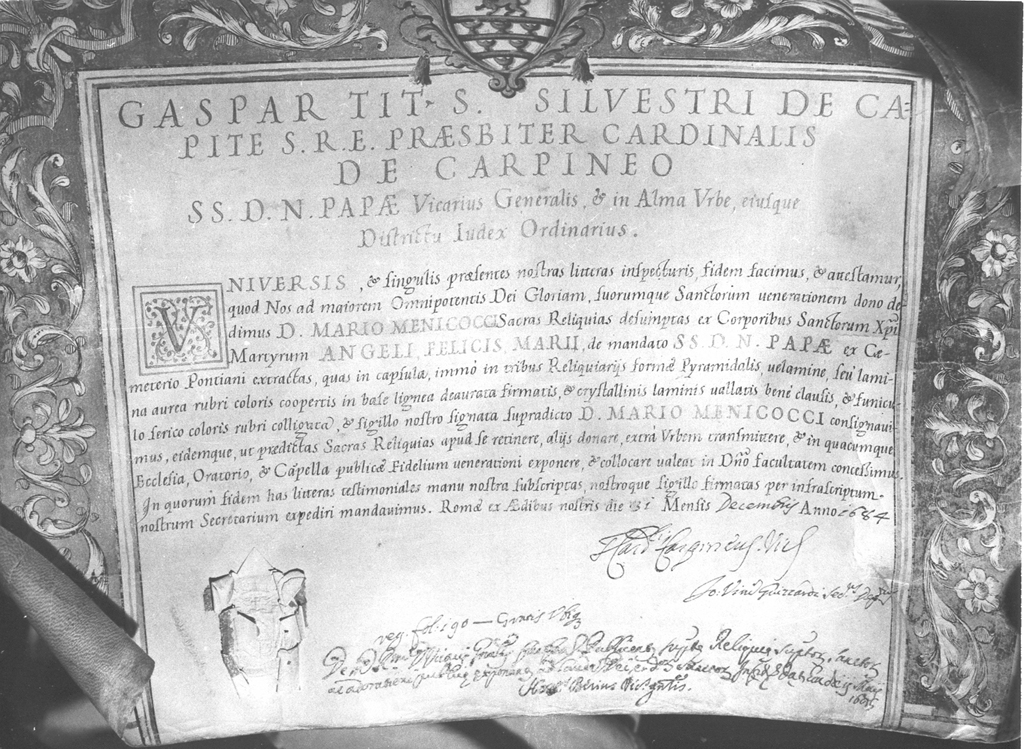 GASPAR TIT. S. SILVESTRI DE CA=
PITE S.R.E. PRÆSBITER CARDINALIS
DE CARPINEO
SS. D. N. PAPÆ Vicarius Generalis, & in Alma Vrbe, eiusque
Districtu Iudex Ordinarius.
VNIVERSIS, & singulis præsentes nostras litteras inspecturis, fidem facimus, & attestamur,
quod Nos ad maiorem Omnipotentis Dei Gloriam, suorumque Sanctorum uenerationem dono de
dimus D. MARIO MENICOCCI Sacras Reliquias desumptas ex Corporibus Sanctorum Xpi
Martyrum ANGELI, FELICIS, MARII, de mandato SS. D. N. PAPÆ ex Ce-
meterio Pontiani extractas, quas in capsula, immò in tribus Reliquiarijs formæ Pyramidalis, uelamine, seu lami-
na aurea rubri coloris coopertis in base lignea deaurata firmatis, & crystallinis laminis uallatis benè clausis, & funicu-
lo serico coloris rubri colligata, & sigillo nostro signata supradicto D. MARIO MENICOCCI consignaui-
mus, eidemque, ut predictas Sacras Reliquias apud se retinere, alijs donare, extrà Vrbem transmittere, & in quacumque
Ecclesia, Oratorio, & Capella publicæ Fidelium uenerationi exponere, & collocare ualeat in Dño facultatem concessimus.
In quorum fidem has litteras testimoniales manu nostra subscriptas, nostroque sigillo firmatas per infrascriptum
nostrum Secretarium expediri mandauimus. Romæ ex Ædibus nostris die 31 Mensis Decembris Anno 1684
G. Card. Carpineus Vic.
reg. fol. 190 - Gratis
Reliquias